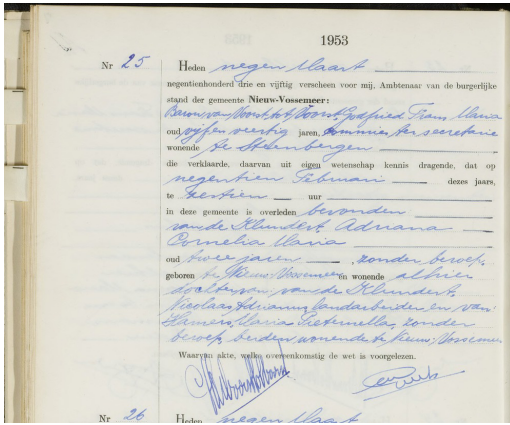 1953
Nr 25 Heden negen Maart
negentienhonderd drie en vijftig verscheen voor mij, Ambtenaar van de burgerlijke
stand der gemeente Nieuw-Vossemeer:
Baron van Voorst tot Voorst, Godfried Frans Maria
oud vijf en veertig jaren, commies ter secretarie
wonende te Steenbergen
die verklaarde, daarvan uit eigen wetenschap kennis dragende, dat op
negentien Februari dezes jaars,
te zestien uur
in deze gemeente is overleden bevonden
van de Klundert Adriana
Cornelia Maria
oud twee jaren, zonder beroep,
geboren te Nieuw-Vossemeer en wonende alhier
dochter van: van de Klundert,
Nicolaas Adrianus, landarbeider en van:
Hamers, Maria Pieternella, zonder
beroep, beiden wonende te Nieuw-Vossemeer
Waarvan akte, welke overeenkomstig de wet is voorgelezen.
Nr 26 Heden negen Maart